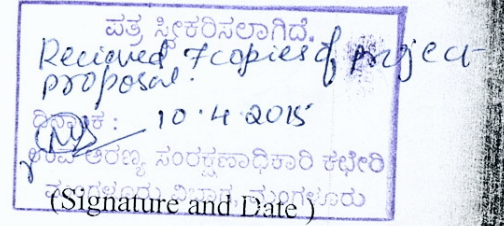 ಪತ್ರ ಸ್ವೀಕರಿಸಲಾಗಿದೆ.
Recieved 7 copies of project
proposal.
ದಿನಾಂಕ : 10.4.2015
ಉಪ ಅರಣ್ಯ ಸಂರಕ್ಷಣಾಧಿಕಾರಿ ಕಛೇರಿ
ಮಂಗಳೂರು ವಿಭಾಗ, ಮಂಗಳೂರು
(Signature and Date )